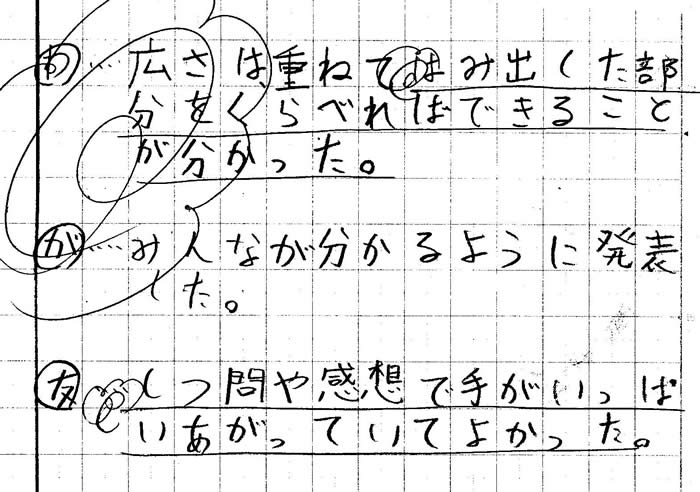 わ……広さは、重ねてはみ出した部
分をくらべればできること
が分かった。
が……みんなが分かるように発表
した。
友……しつ問や感想で手がいっぱ
いあがっていてよかった。